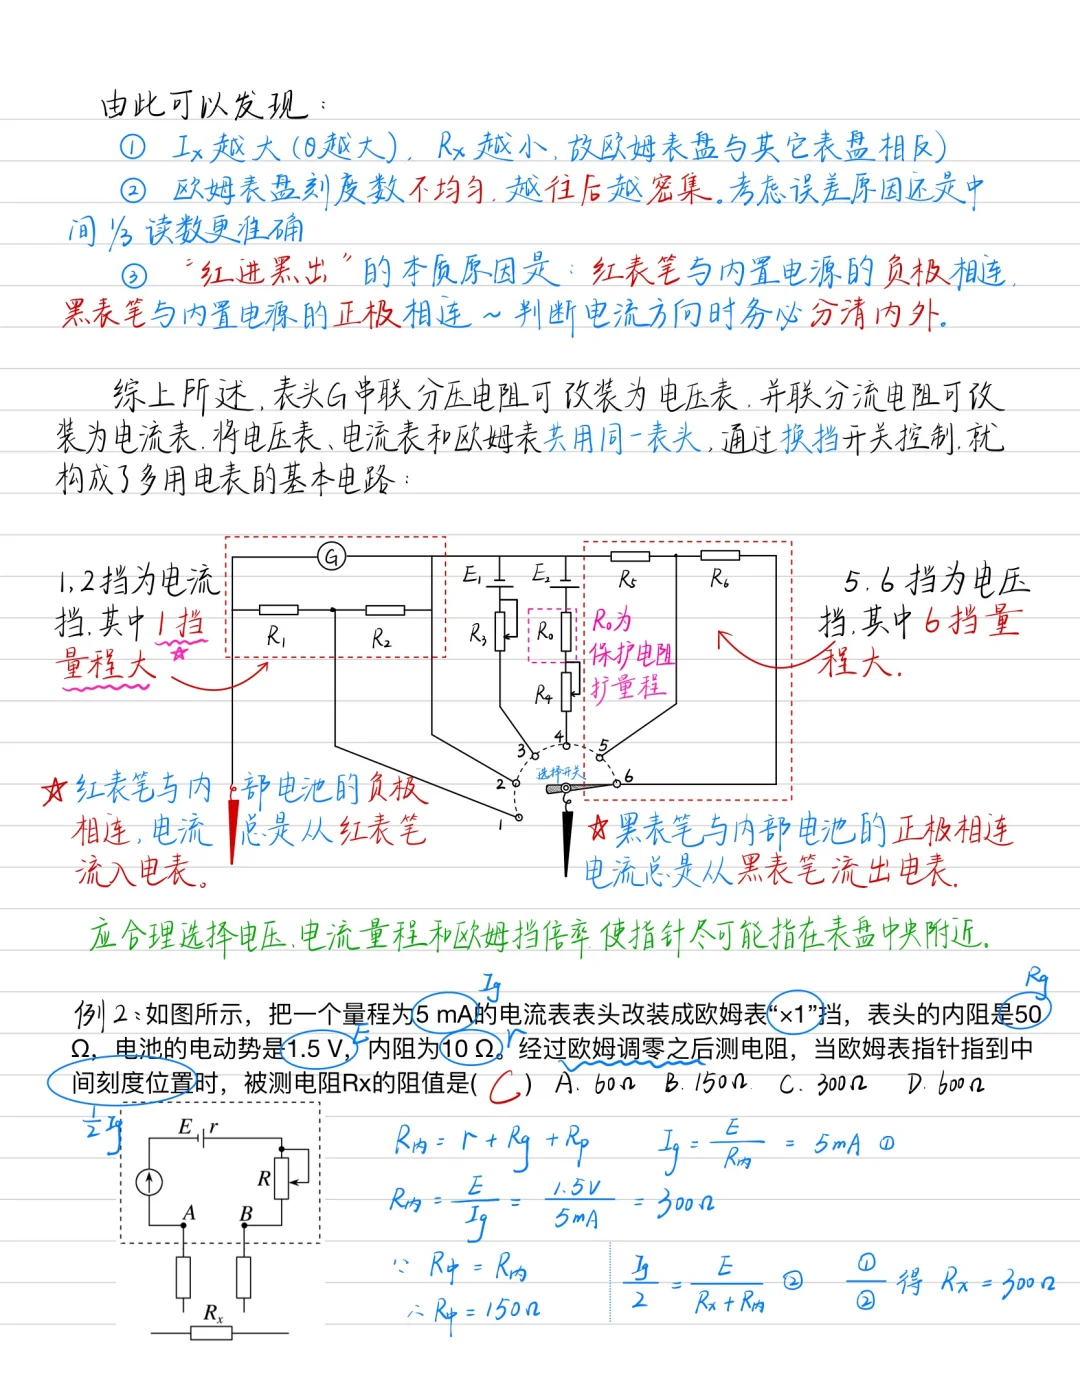 由此可以发现：
① Ix越大(θ越大)，Rx越小，故欧姆表盘与其它表盘相反)
② 欧姆表盘刻度数不均匀，越往后越密集。考虑误差原因还是中
间⅓读数更准确
③ “红进黑出”的本质原因是：红表笔与内置电源的负极相连，
黑表笔与内置电源的正极相连~判断电流方向时务必分清内外。
综上所述，表头G串联分压电阻可改装为电压表，并联分流电阻可改
装为电流表，将电压表、电流表和欧姆表共用同一表头，通过换挡开关控制，就
构成了多用电表的基本电路：
1,2挡为电流
挡,其中1挡
量程大
☆
G
R1
R2
E1
E2
R3
R0
R4
R5
R6
R0为
保护电阻
扩量程
5.6挡为电压
挡,其中6挡量
程大.
1
2
3
4
5
6
选择开关
☆红表笔与内部电池的负极
相连,电流总是从红表笔
流入电表。
☆黑表笔与内部电池的正极相连
电流总是从黑表笔流出电表.
应合理选择电压、电流量程和欧姆挡倍率,使指针尽可能指在表盘中央附近.
Ig
Rg
例2:如图所示，把一个量程为5 mA的电流表表头改装成欧姆表“×1”挡，表头的内阻是50
Ω，电池的电动势是1.5 V，E 内阻为10 Ω。r 经过欧姆调零之后测电阻，当欧姆表指针指到中
间刻度位置时，被测电阻Rx的阻值是( C ) A. 60Ω B. 150Ω C. 300Ω D. 600Ω
½Ig
E r
R
A B
Rx
R内 = r + Rg + Rp Ig = E/R内 = 5mA ①
R内 = E/Ig = 1.5V/5mA = 300Ω
∵ R中 = R内
∴ R中 = 150Ω
Ig/2 = E/(Rx + R内) ② ①/② 得 Rx = 300Ω